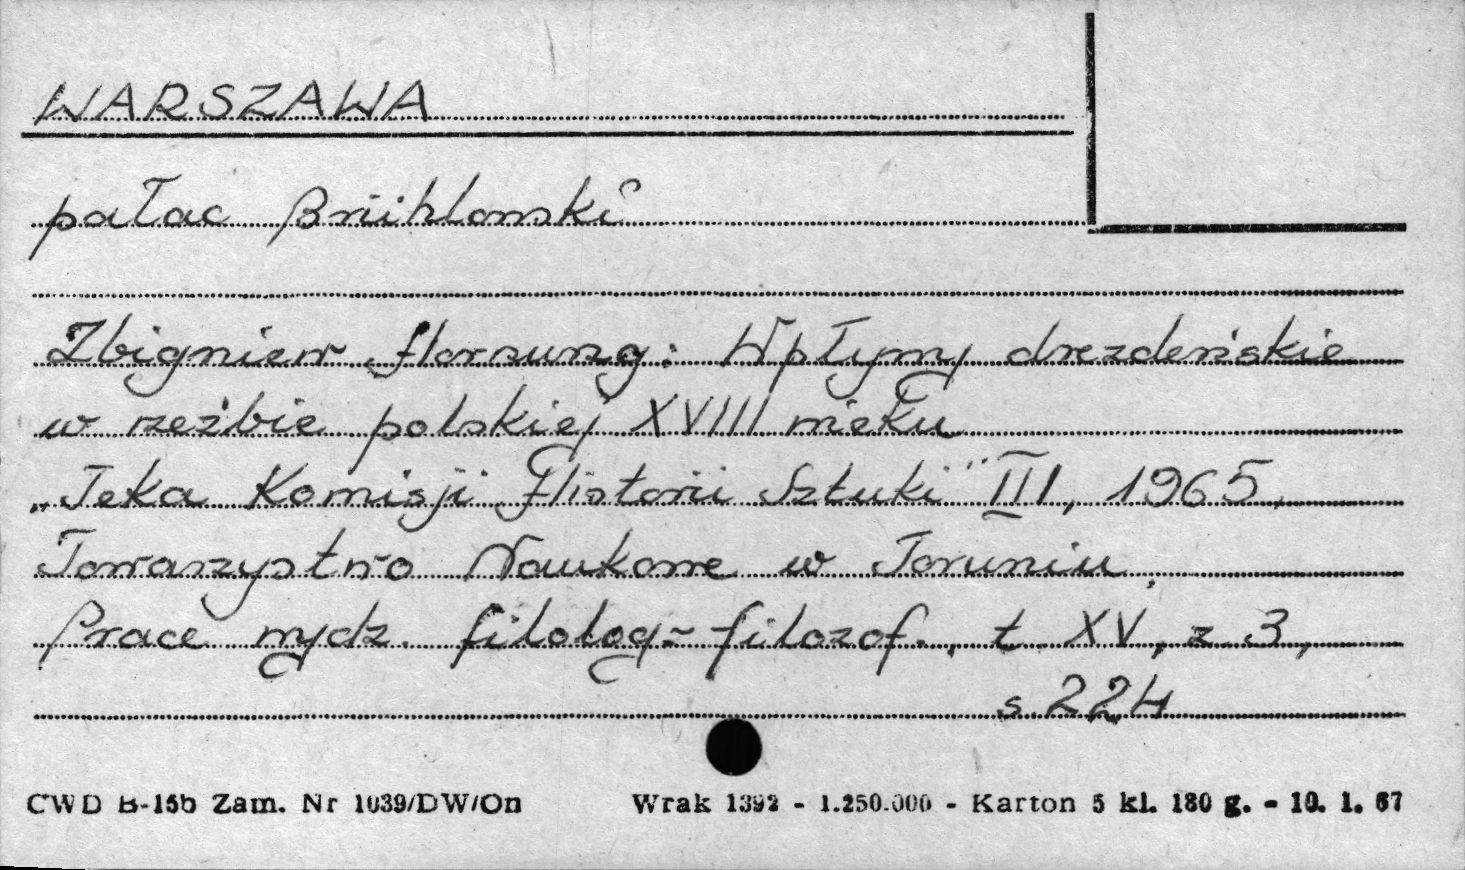 WARSZAWA
pałac Brühlowski
Zbigniew Hornung: Wpływy drezdeńskie
w rzeźbie polskiej XVIII wieku
„Teka Komisji Historii Sztuki" III, 1965,
Towarzystwo Naukowe w Toruniu,
Prace wydz. filolog-filozof., t. XV, z 3,
s. 224
CWD B-15b Zam. Nr 1039/DW/On Wrak 1392 - 1.250.000 - Karton 5 kl. 180 g. - 10. 1. 67